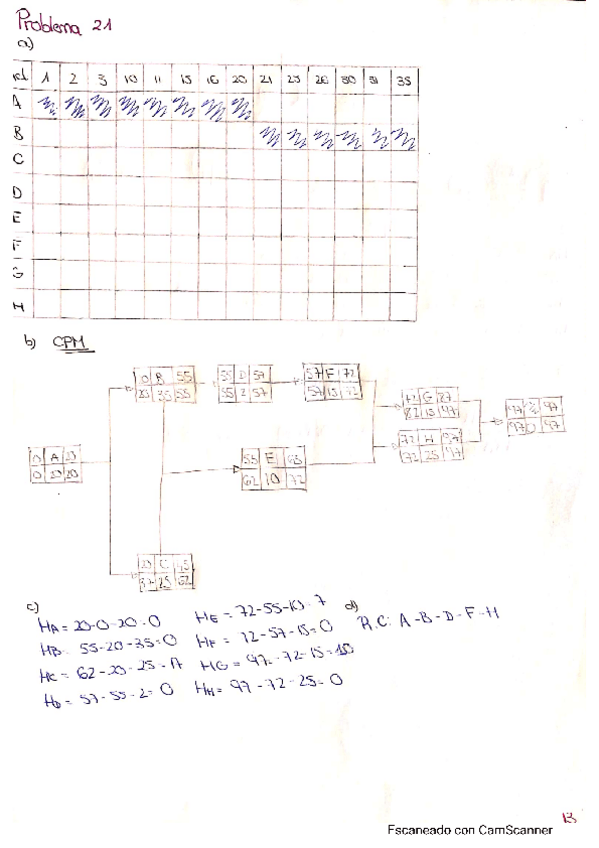 Problema 21
a)
1 2 3 10 11 15 16 20 21 25 26 30 31 35
A
B
C
D
E
F
G
H
b) CPM
0 B 55 D 57 57 F 72
20 35 55 55 2 57 57 15 72
72 G 87
82 15 97
97 97
97 0 97
0 A 20
0 20 20
55 E 65
62 10 72
72 H 97
72 25 97
20 C 45
37 25 62
c)
HA = 20-0-20=0
HB = 55-20-35=0
HC = 62-20-25=17
HD = 57-55-2=0
HE = 72-55-10=7
HF = 72-57-15=0
HG = 97-72-15=10
HH = 97-72-25=0
d)
R.C: A-B-D-F-H
13
Escaneado con CamScanner